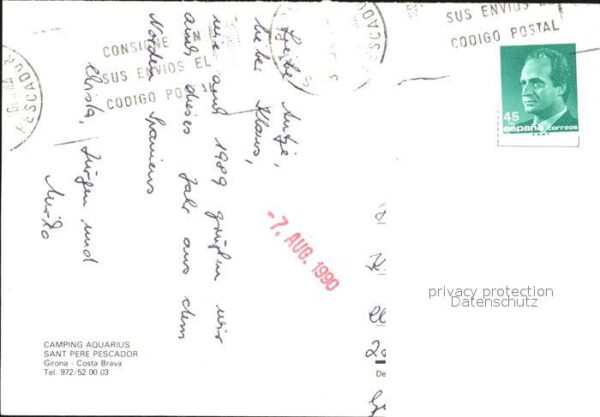 CONSIGNE EN
SUS ENVIOS EL
CODIGO POSTAL
SUS ENVIOS EL
CODIGO POSTAL
PESCADOR
PESCADOR
45
españa correos
Liebe Antje,
lieber Klaus,
wie auch 1989 grüßen wir
auch dieses Jahr aus dem
Norden Spaniens
Christa, Jürgen und
Mirko
-7. AUG. 1990
privacy protection
Datenschutz
CAMPING AQUARIUS
SANT PERE PESCADOR
Girona - Costa Brava
Tel. 972/52 00 03
De